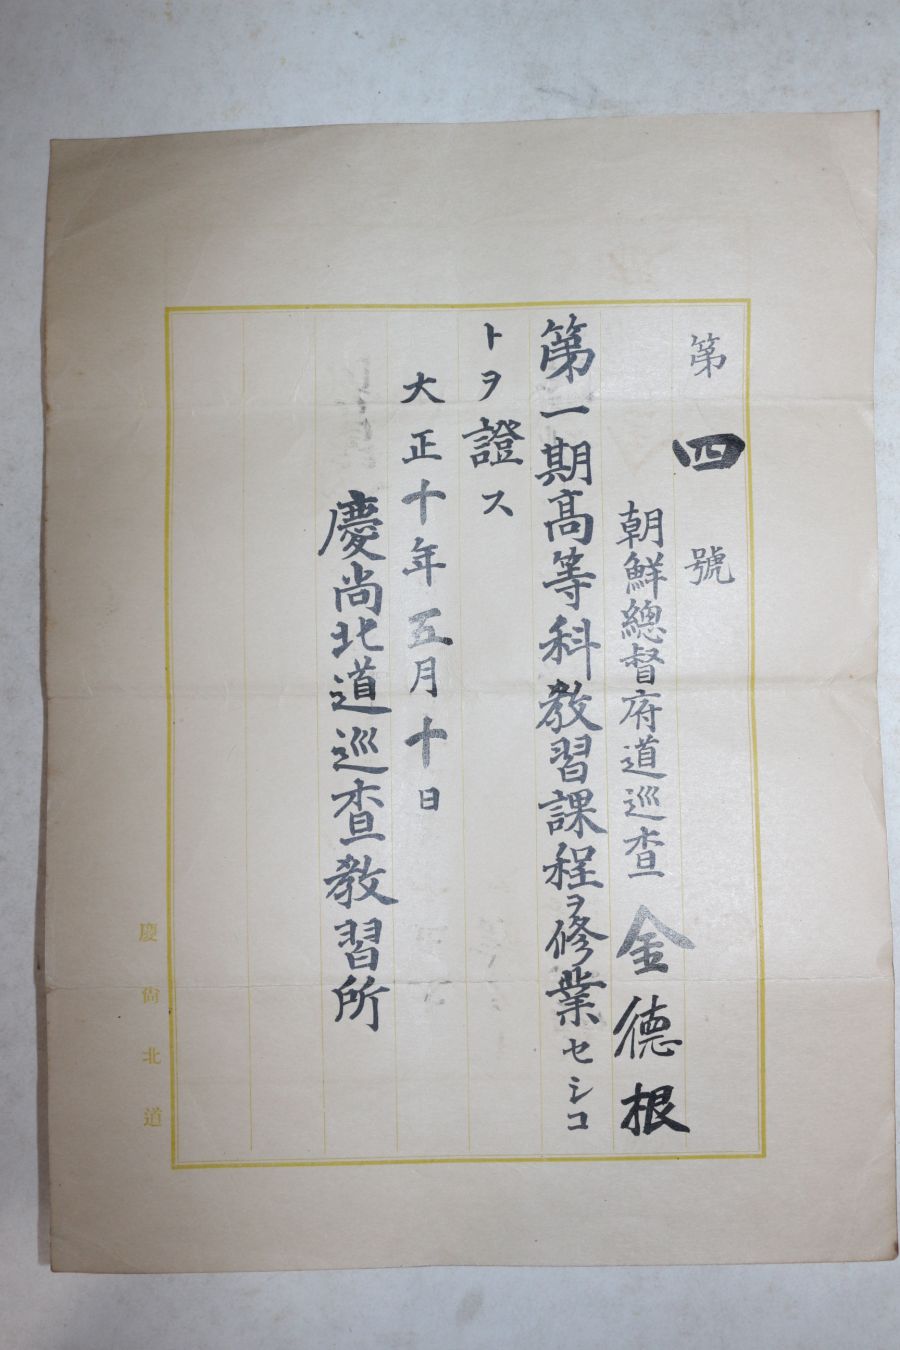 第四號
朝鮮總督府道巡査 金德根
第一期高等科教習課程ヲ修業セシコ
トヲ證ス
大正十年五月十日
慶尚北道巡査教習所
慶尚北道